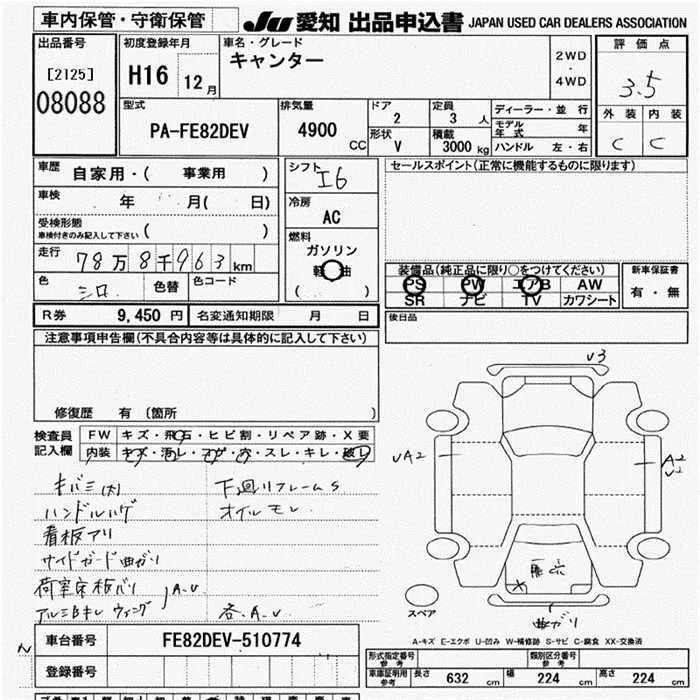 車内保管・守衛保管
JU 愛知 出品申込書 JAPAN USED CAR DEALERS ASSOCIATION
出品番号
[2125]
08088
初度登録年月
H16 12 月
車名・グレード
キャンター
2WD
・
4WD
評価点
3.5
外装 内装
C C
型式
PA-FE82DEV
排気量
4900 CC
ドア
2
形状
V
定員
3 人
積載
3000 kg
ディーラー・並行
モデル年式 年
ハンドル 左・右
車歴
自家用・( 事業用 )
車検
年 月( 日)
受検形態
車検付きのみ記入して下さい ( )
走行
78万8千963 km
色
シロ
色替
色コード
シフト
I6
冷房
AC
燃料
ガソリン
軽油
( )
セールスポイント(正常に機能するものに限ります)
装備品(純正品に限り○をつけてください)
PS PW エアB AW
SR ナビ TV カワシート
新車保証書
有・無
R券 9,450 円 名変通知期限 月 日
後日品
注意事項申告欄(不具合内容等は具体的に記入して下さい)
修復歴 有 (箇所 )
検査員記入欄
FW キズ・飛石・ヒビ割・リペア跡・X要
内装 キズ・汚レ・コゲ・穴・スレ・キレ・破レ
キバミ(内) 下回りフレームS
ハンドルハゲ オイルモレ
看板アリ
サイドガード曲ガリ
荷室床板バリ
A.U
アルミBキレ ウィング 各A.U
U3
UA2
A2
U2
曲ガリ
スペア
A-キズ E-エクボ U-凹み W-補修跡 S-サビ C-腐食 XX-交換済
車台番号 FE82DEV-510774
登録番号
形式指定番号 参考
類別区分番号 参考
車庫証明用 参考 長さ 632 cm 幅 224 cm 高さ 224 cm